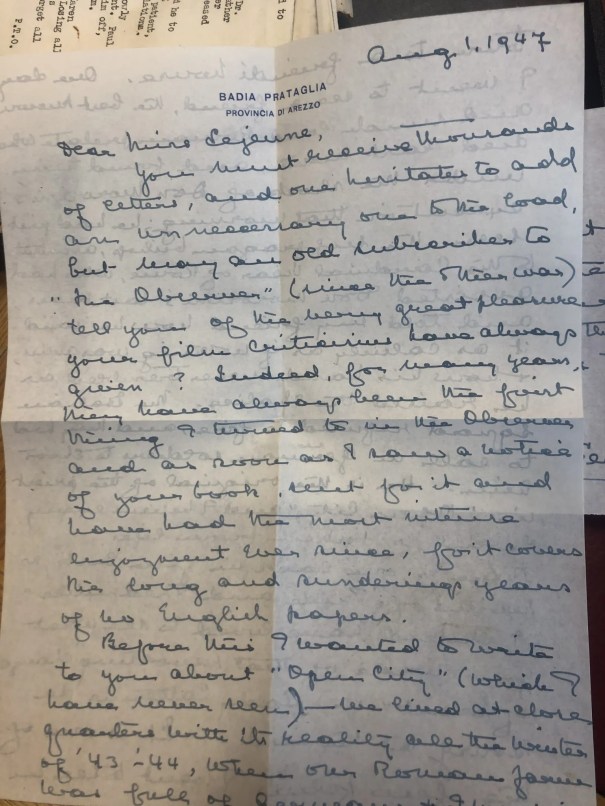 In
mber
essed
d to
he to
patient.
lations.
t, Paul
im off,
aren
Losing all
rget all
P.T.O.
Aug 1. 1947
BADIA PRATAGLIA
PROVINCIA DI AREZZO
Dear Miss Lejeune,
You must receive thousands
of letters, and one hesitates to add
an unnecessary one to the load,
but may an old subscriber to
"The Observer" (since the other war)
tell you of the very great pleasure
your film criticisms have always
given? Indeed, for many years,
they have always been the first
thing I turned to in the Observer
and as soon as I saw a notice
of your book, sent for it and
have had the most intense
enjoyment ever since, for it covers
the long and sundering years
of no English papers.
Before this I wanted to write
to you about "Open City" (which I
have never seen) — we lived at close
quarters with its reality all the winter
of '43-'44, when our Roman
was full of